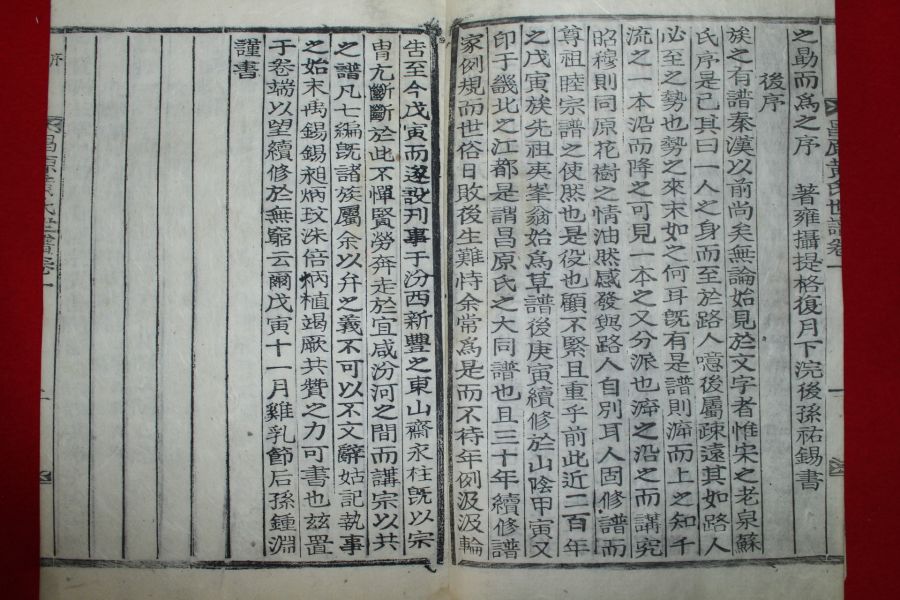 之勖而爲之序　著雍攝提格復月下浣後孫祐錫書
後序
族之有譜秦漢以前尚矣無論始見於文字者惟宋之老泉蘇
氏序是已其曰一人之身而至於路人噫後屬疎遠其如路人
必至之勢也勢之來末如之何耳旣有是譜則泝而上之知千
流之一本沿而降之可見一本之又分派也泝之沿之而講究
昭穆則同原花樹之情油然感發與路人自別耳人固修譜而
尊祖睦宗譜之使然也是役也顧不緊且重乎前此近二百年
之戊寅族先祖夷峯翁始爲草譜後庚寅續修於山陰甲寅又
印于畿北之江都是謂昌原氏之大同譜也且三十年續修譜
家例規而世俗日敗後生難恃余常爲是而不待年例汲汲輪
告至今戊寅而遂設刋事于汾西新豐之東山齋永柱旣以宗
冑尤斷斷於此不憚賢勞奔走於宜咸汾河之間而講宗以共
之譜凡七編旣諸族屬余以弁之義不可以不文辭姑記執事
之始末禹錫錫昶炳玟洙倍炳植竭厥共贊之力可書也玆置
于卷端以望續修於無窮云爾戊寅十一月雞乳節后孫鍾淵
謹書
昌原黃氏世譜卷一
序
昌原黃氏世譜卷一